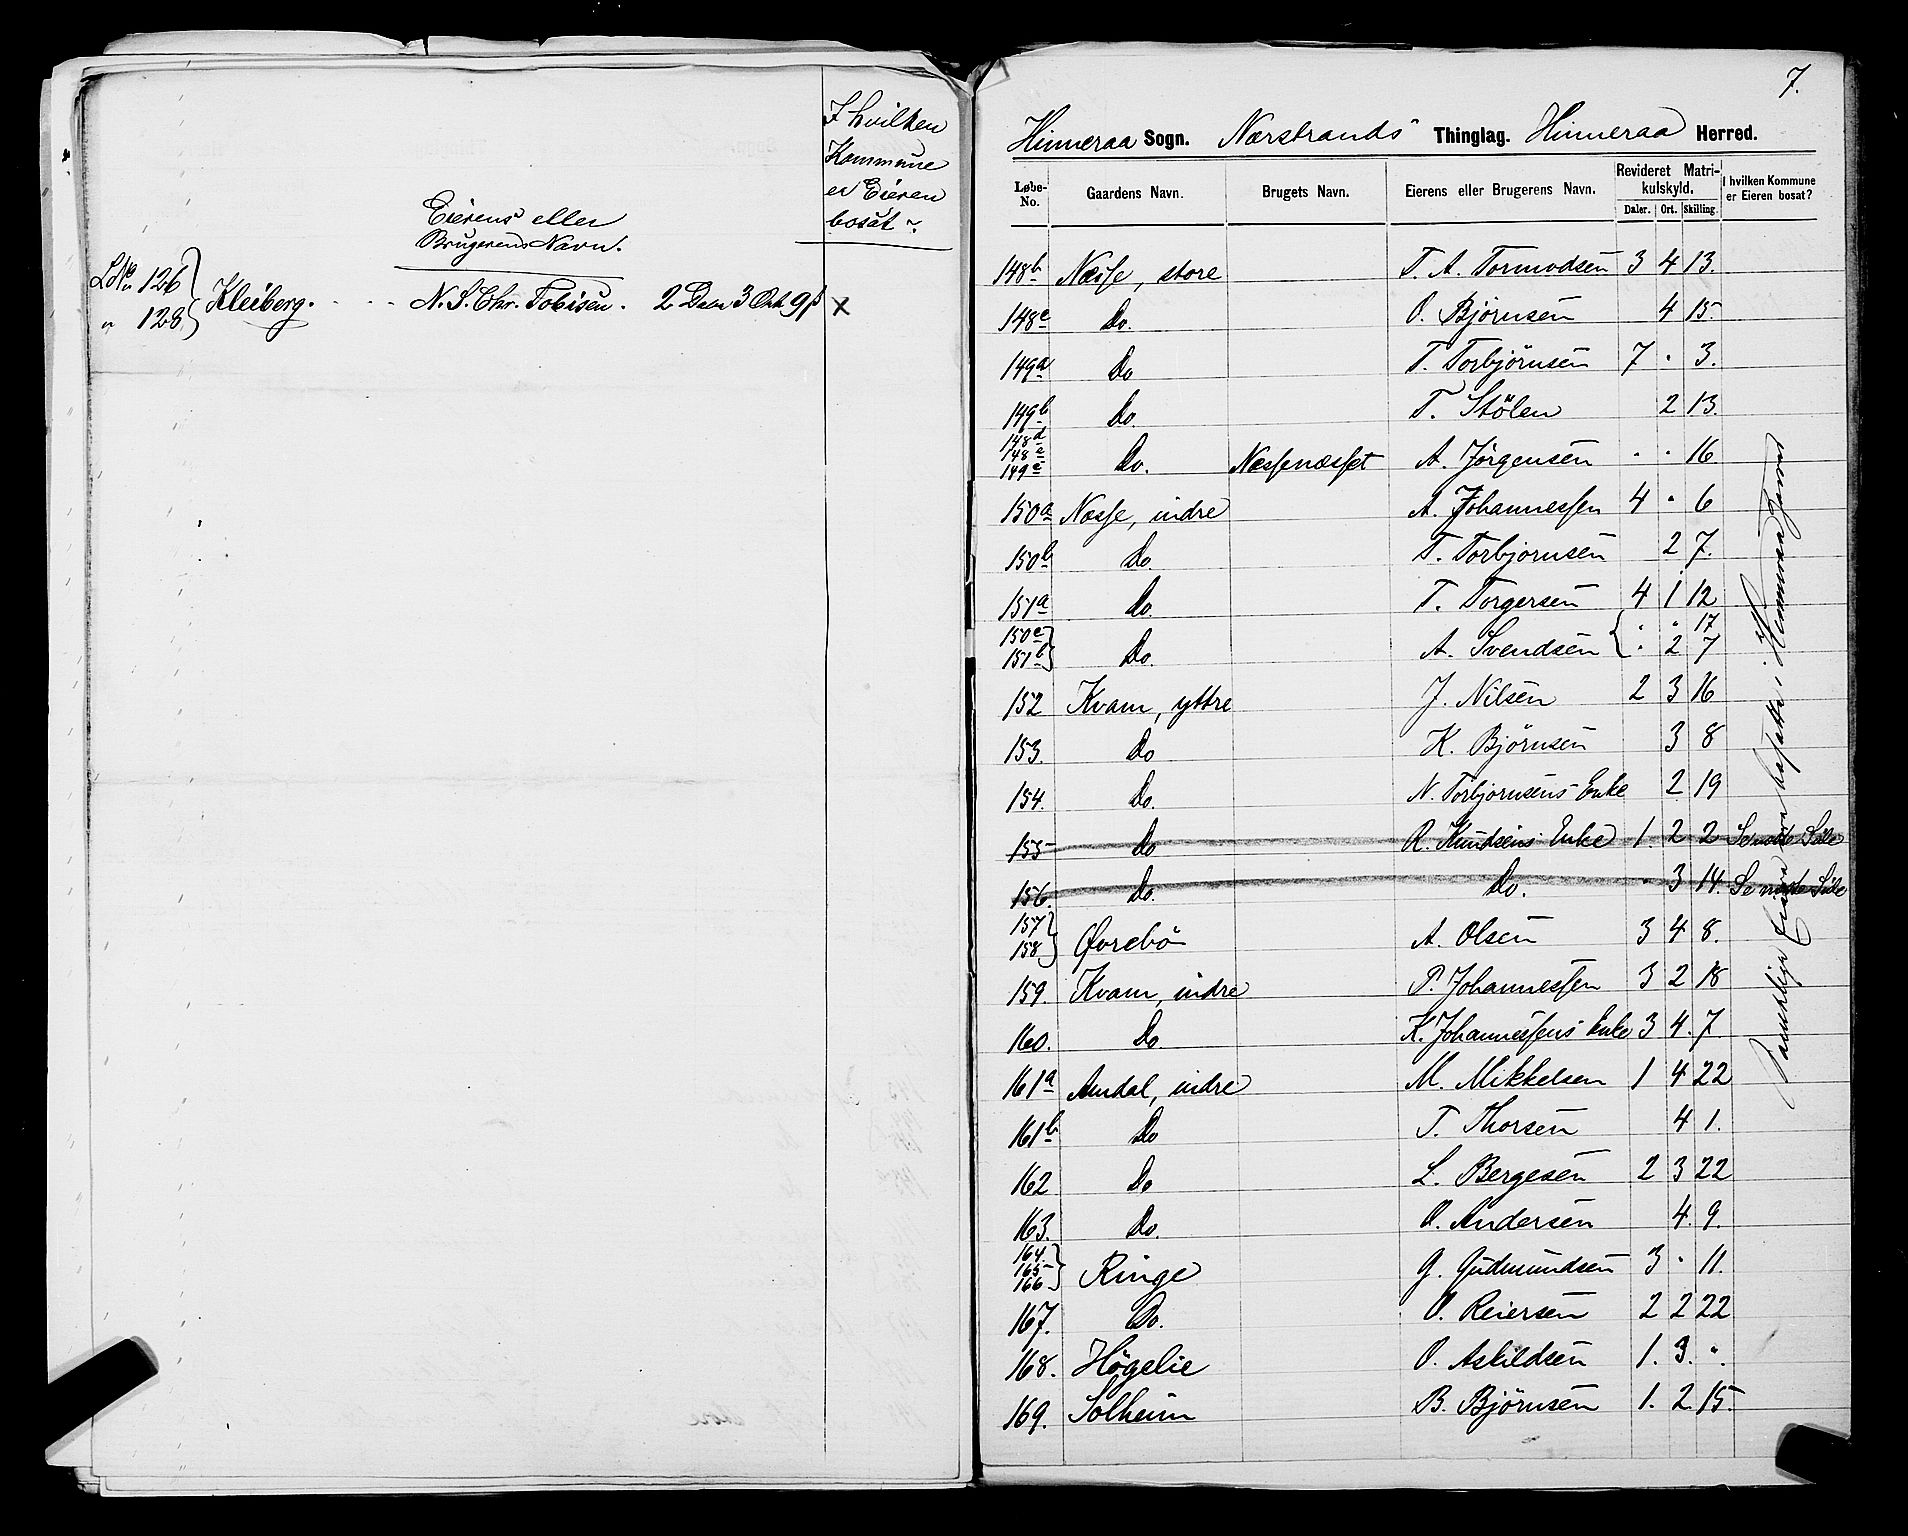 I hvilken
Kommune
er Eieren
bosat?
Eierens eller
Brugerens Navn.
LNo 126
" 128 } Kleiberg. - - - N. S. Chr. Tobisen. 2 Daler 3 Ort 9 β x
7.
Hinneraa Sogn. Nærstrands Thinglag. Hinneraa Herred.
Løbe-No. Gaardens Navn. Brugets Navn. Eierens eller Brugerens Navn. Revideret Matrikulskyld. Daler. Ort. Skilling. I hvilken Kommune er Eieren bosat?
148b Næsse, store T. A. Tormodsen 3 4 13.
148c Do. O. Bjørnsen 4 15.
149a Do T. Torbjörnsen 7 " 3.
149b Do. T. Stölen 2 13.
148d
148e
149c Do. Næssenæsset A. Jörgensen " " 16
150a Næsse, indre A. Johannessen 4 " 6
150b Do. T. Torbjornsen 2 7.
151a Do. T. Torgersen 4 1 12
150c } { " " 17
151b } Do. A. Svendsen { " 2 7
152 Kvam, yttre J. Nilsen 2 3 16
153. Do K. Björnsen 3 8
154. Do. N. Torbjornsens Enke 2 19
155 Do R. Knudsens Enke 1. 2 2 Se næste Side
156. Do. Do. " 3 14. Se næste Side
157 }
158 } Øvrebö A. Olsen 3 4 8.
159. Kvam, indre P. Johannessen 3 2 18
160. Do K. Johannessens Enke 3 4. 7
161a Amdal, indre M. Mikkelsen 1 4 22
161b Do T. Thorsen 4 1.
162 Do L. Bergesen 2 3 22
163. Do. O. Andersen 4. 9.
164.
165
166 } Ringe G. Gudmundsen 3 " 11.
167. Do. O. Reiersen 2 2 22
168. Högelie O. Askildsen 1. 3. ".
169. Solheim B. Björnsen 1. 2 15.
Samtlige Eiere ere bosatte i Hinneraa